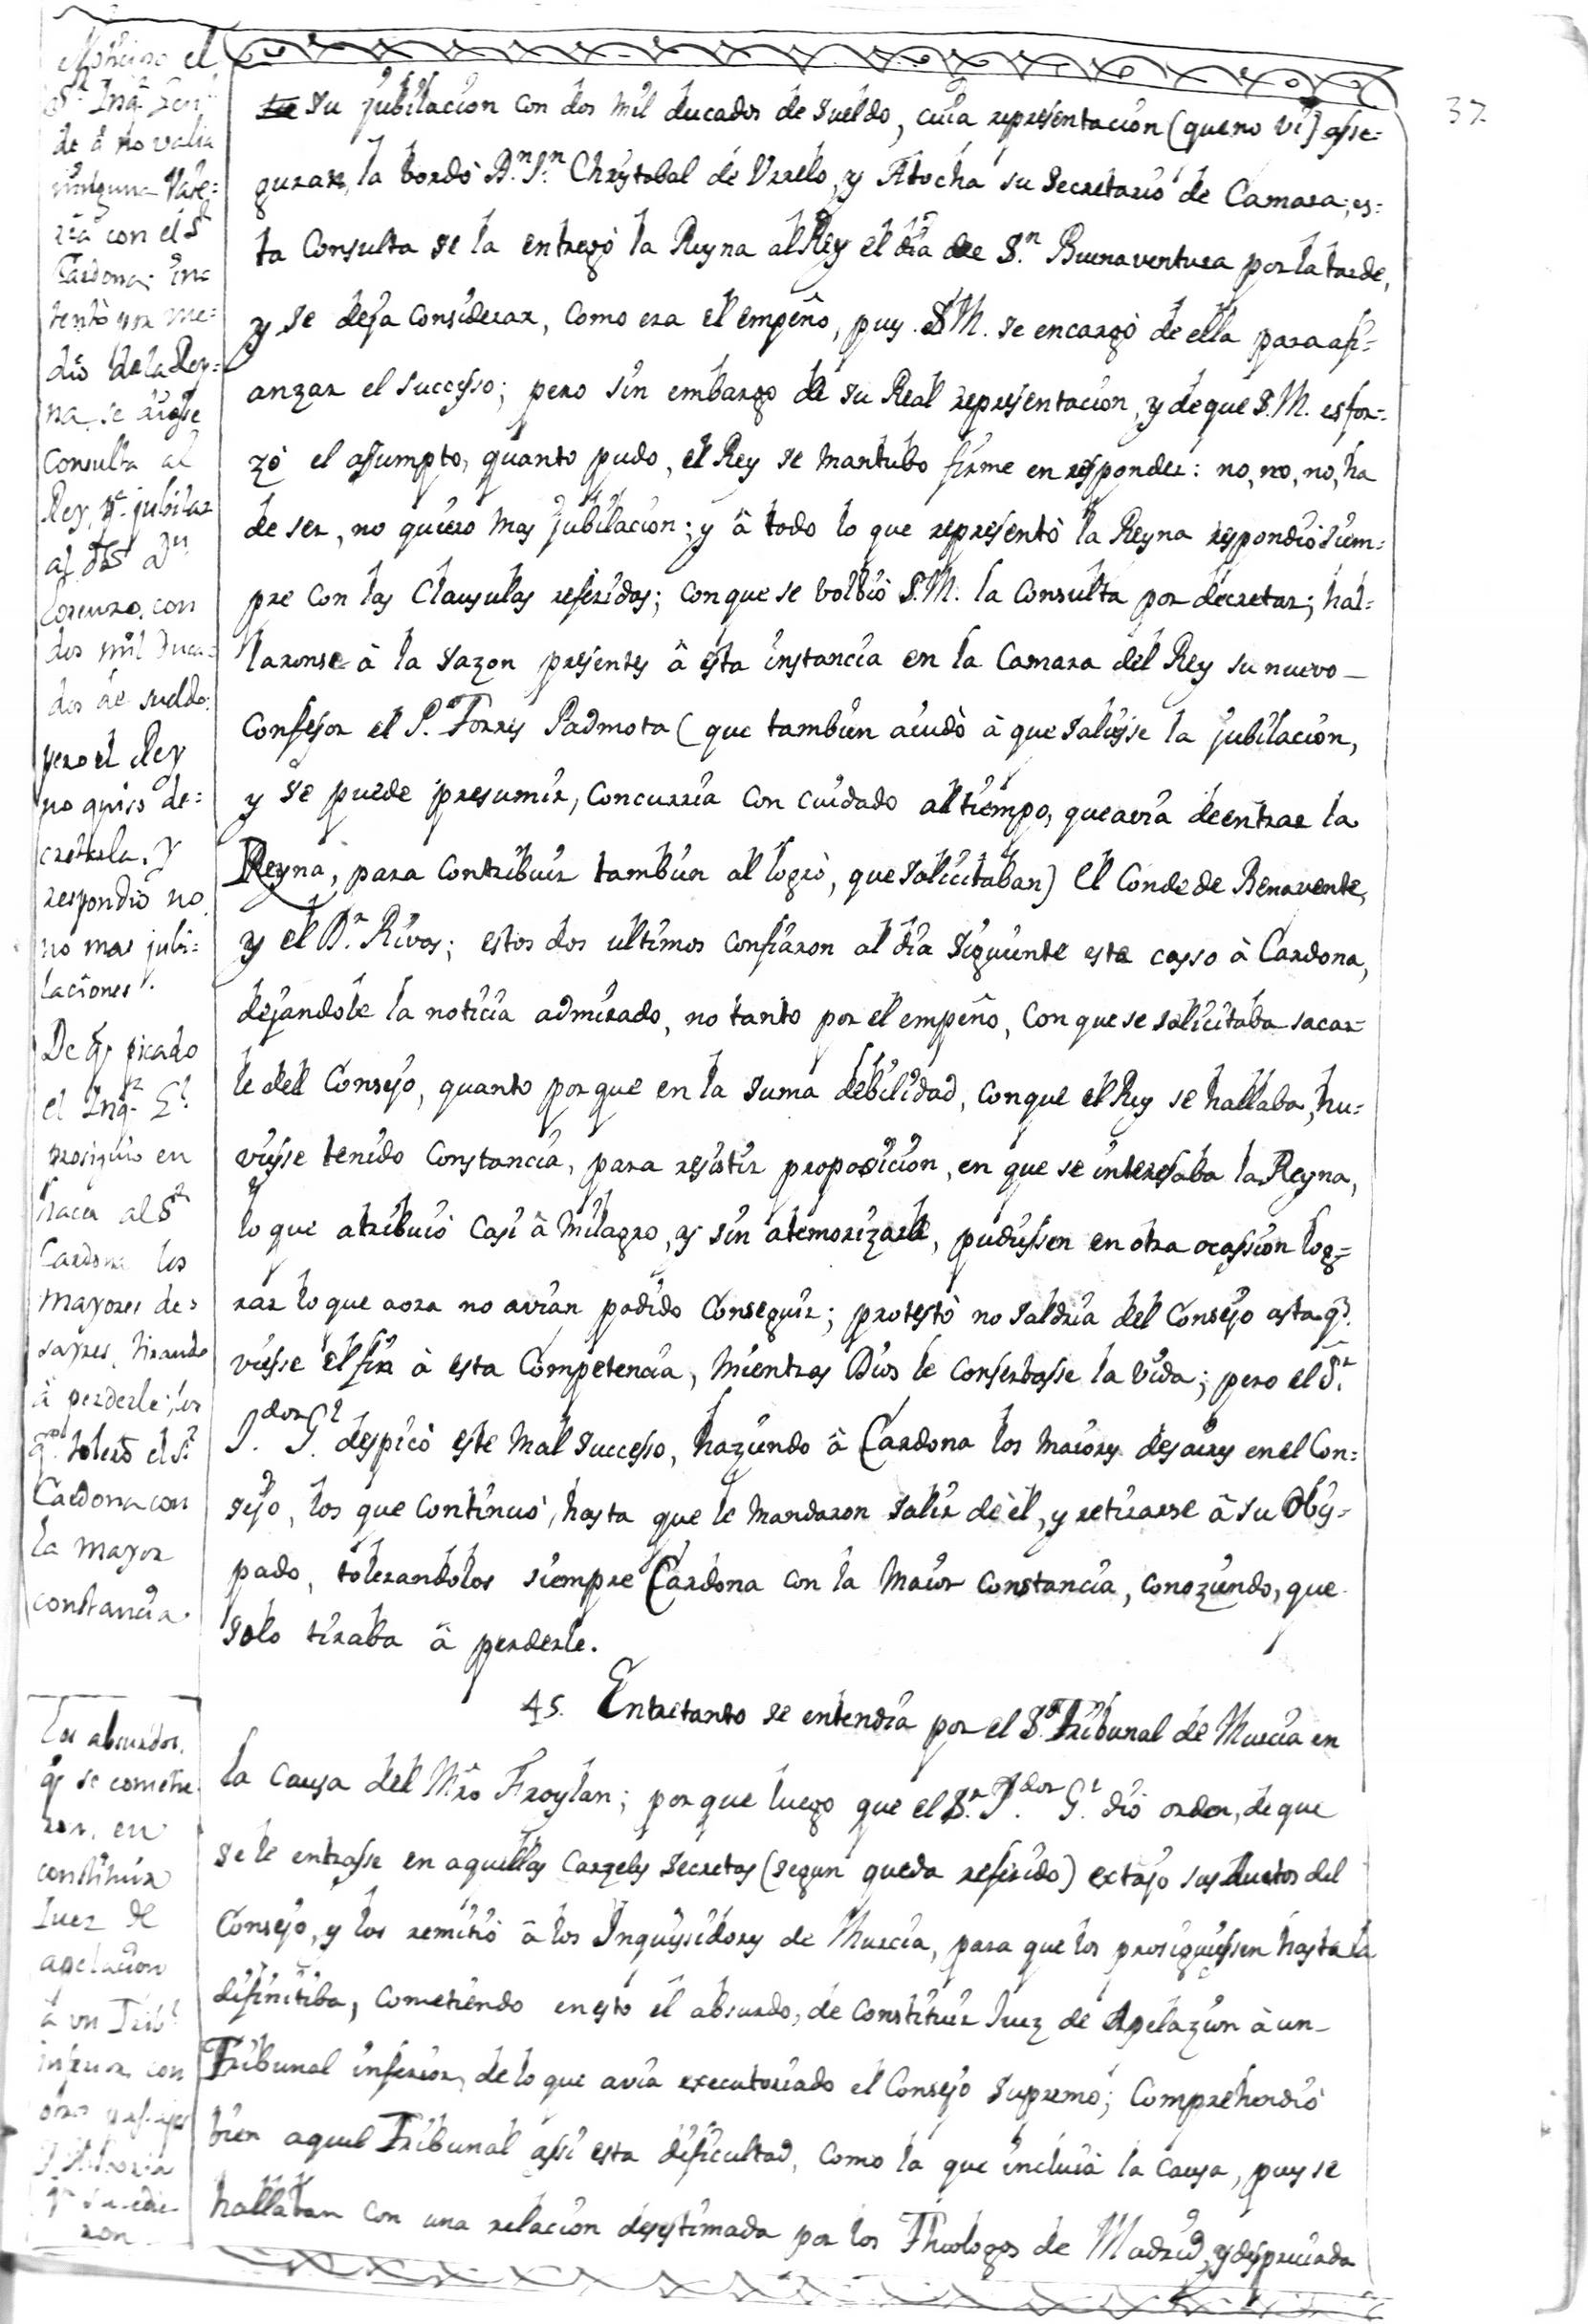 37
su jubilacion con dos mil ducados de sueldo, cuia representacion (que no vi) asse=
guran, la bordò Dn. Jn. Chrystobal de Urrelo, y Atocha su Secretario de Camara; es=
ta Consulta se la entregò la Reyna al Rey el dia de Sn. Buenaventura por la tarde,
y se deja considerar, como era el empeño, pues S.M. se encargò de ella para afi=
anzar el successo; pero sin embargo de su Real representacion, y de que S.M. esfor=
zò el assumpto, quanto pudo, el Rey se mantubo firme en responder: no, no, no, ha
de ser, no quiero mas jubilacion; y â todo lo que representò la Reyna respondiò siem=
pre con las Clausulas referidas; con que se bolbiò S.M. la Consulta por decretar; hal=
laronse à la sazon presentes â esta instancia en la Camara del Rey su nuevo
Confesor el P. Torres Padmota (que tambien aiudò à que saliesse la jubilacion,
y se puede presumir, concurria con cuidado al tiempo, que avia de entrar la
Reyna, para contribuir tambien al logro, que solicitaban) el Conde de Benavente,
y el Dr. Rivas; estos dos ultimos confiaron al dia siguiente este casso à Cardona,
dejandole la noticia admirado, no tanto por el empeño, con que se solicitaba sacar-
le del Consejo, quanto por que en la suma debilidad, con que el Rey se hallaba, hu=
viesse tenido constancia, para resistir proposicion, en que se interesaba la Reyna,
lo que atribuiò casi â milagro, y sin atemorizarle, pudiessen en otra ocassion log=
rar lo que aora no avian podido conseguir; protestò no saldria del Consejo asta q.
viesse el fin à esta Competencia, mientras Dios le conserbasse la vida; pero el Sr.
I.dor Gl. despicò este mal successo, haziendo â Cardona los maiores desaires en el Con=
sejo, los que continuò, hasta que le mandaron salir de èl, y retirarse â su Obis=
pado, tolerandolos siempre Cardona con la maior constancia, conoziendo, que
solo tiraba â perderle.
45. Entretanto se entendia por el So. Tribunal de Murcia en
la causa del Mro Froylan; porque luego que el Sr. I.dor Gl. diò orden, de que
se le entrasse en aquellas carzeles secretas (segun queda referido) extajo sus Autos del
Consejo, y los remitiò â los Inquisidores de Murcia, para que los prosiguiessen hasta la
difinitiba, cometiendo en esto el absurdo, de constituir Juez de Apelazion à un
Tribunal inferior, de lo que avia executoriado el Consejo Supremo; Comprehendiò
bien aquel Tribunal assi esta dificultad, como la que incluia la causa, pues se
hallaban con una relacion desestimada por los Theologos de Madrid, y despreciada
el
Sr. Inqr. Gen
de q no valia
ninguna
con el Sr
Cardona; in=
tentò por me=
dio de la Rey=
na, se
Consulta al
Rey, pa. jubilar
al
Lorenzo, con
dos mil duca=
dos de sueldo:
pero el Rey
no quiso de=
cretarla, y
respondiò no
no mas jubi=
laciones.
De q picado
el Inqr. Gl.
prosiguio en
hacer al Sr
Cardona los
mayores de=
sayres, tirando
à perderle; los
q. tolerò el Sr.
Cardona con
la mayor
constancia.
Los absurdos,
q se cometie
ron, en
constituir
Juez de
apelacion
à un Tribl.
inferior, con
otros pasajes
q sucedie
ron